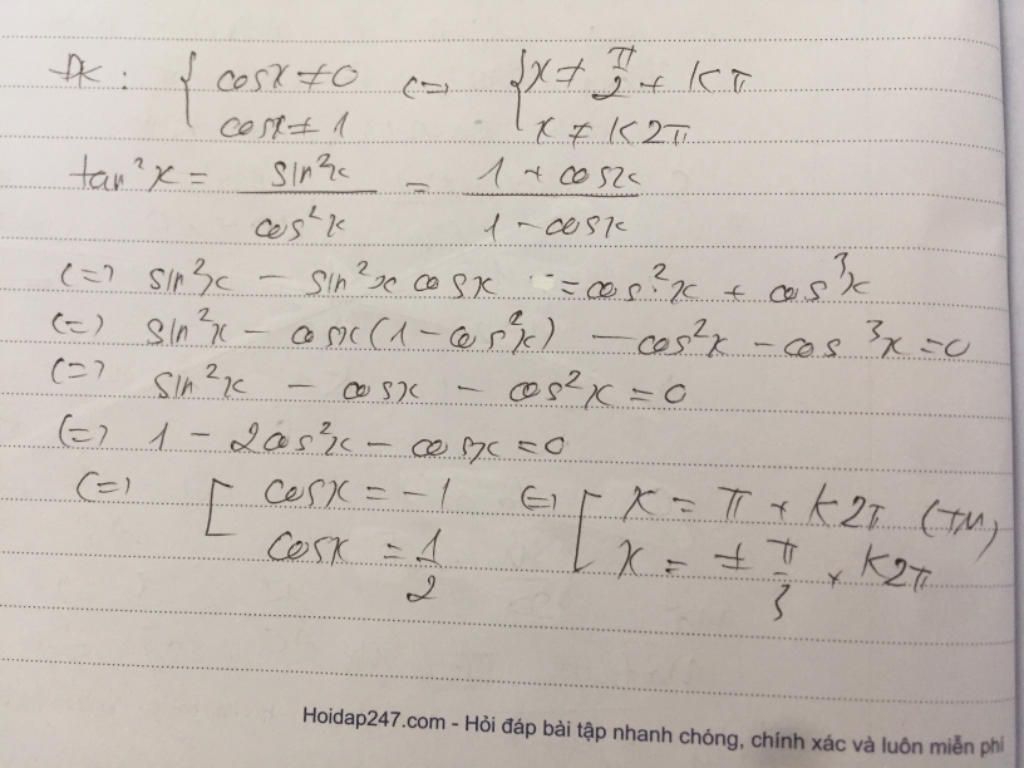 ĐK: { cosx ≠ 0 (=) { x ≠ π/2 + Kπ
cosx ≠ 1 x ≠ K2π
tan²x = sin²x / cos²x = 1 + cosx / 1 - cosx
(=) sin²x - sin²x cosx = cos²x + cos³x
(=) sin²x - cosx(1 - cos²x) - cos²x - cos³x = 0
(=) sin²x - cosx - cos²x = 0
(=) 1 - 2cos²x - cosx = 0
(=) [ cosx = -1 (=) [ x = π + K2π (TM)
cosx = 1/2 x = ± π/3 + K2π
Hoidap247.com - Hỏi đáp bài tập nhanh chóng, chính xác và luôn miễn phí